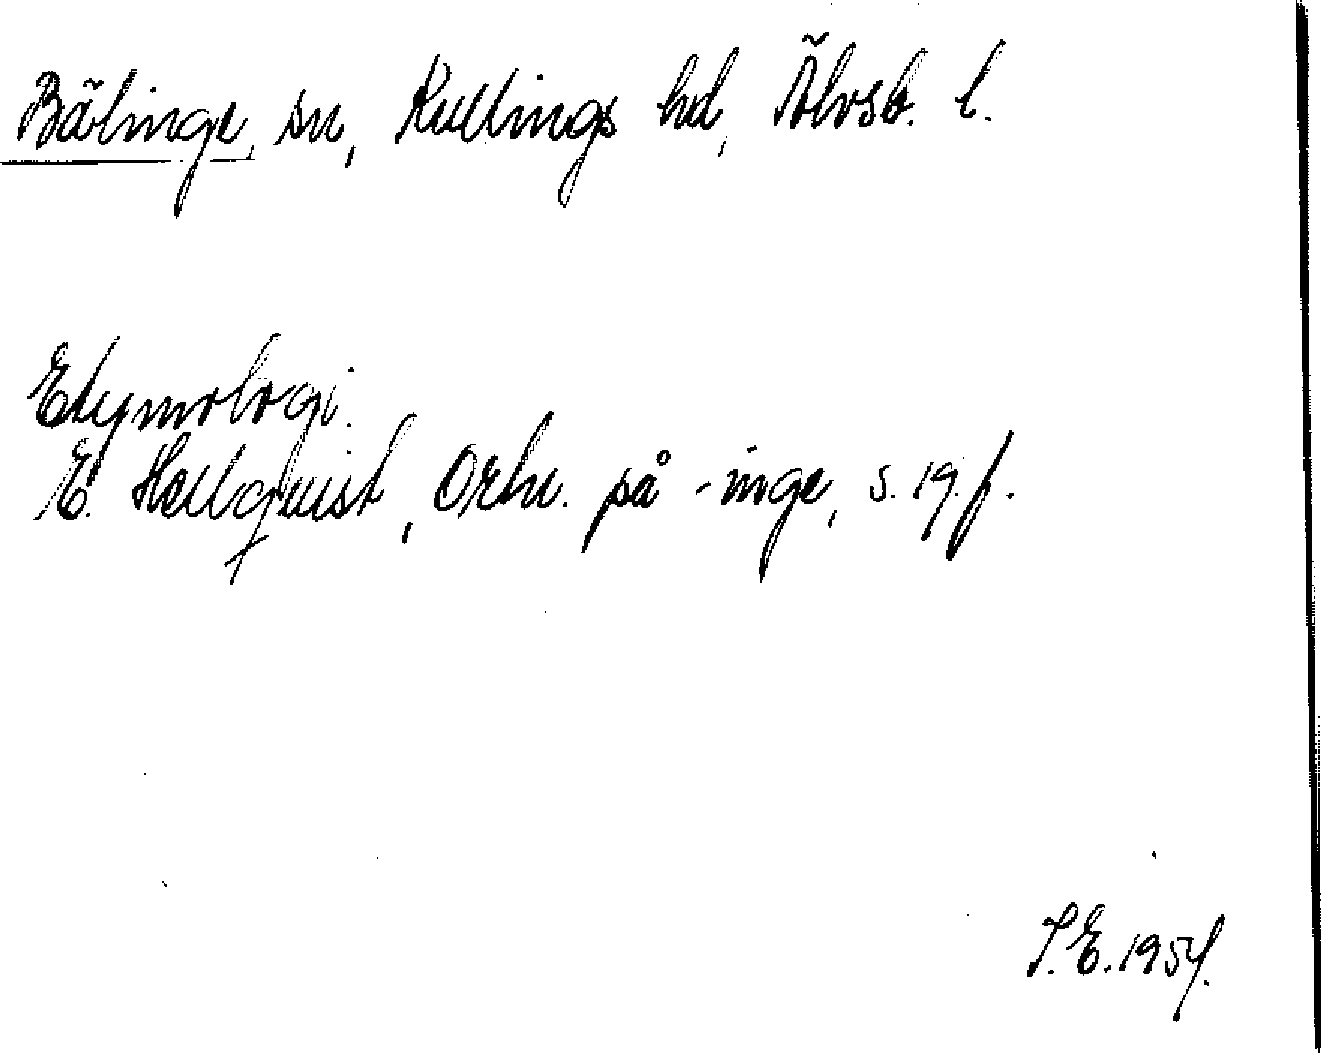 Bälinge sn, Kullings hd, Älvsb. l.
Etymologi.
E. Hellquist, Ortn. på -inge, s. 19 f.
S.E. 1954.